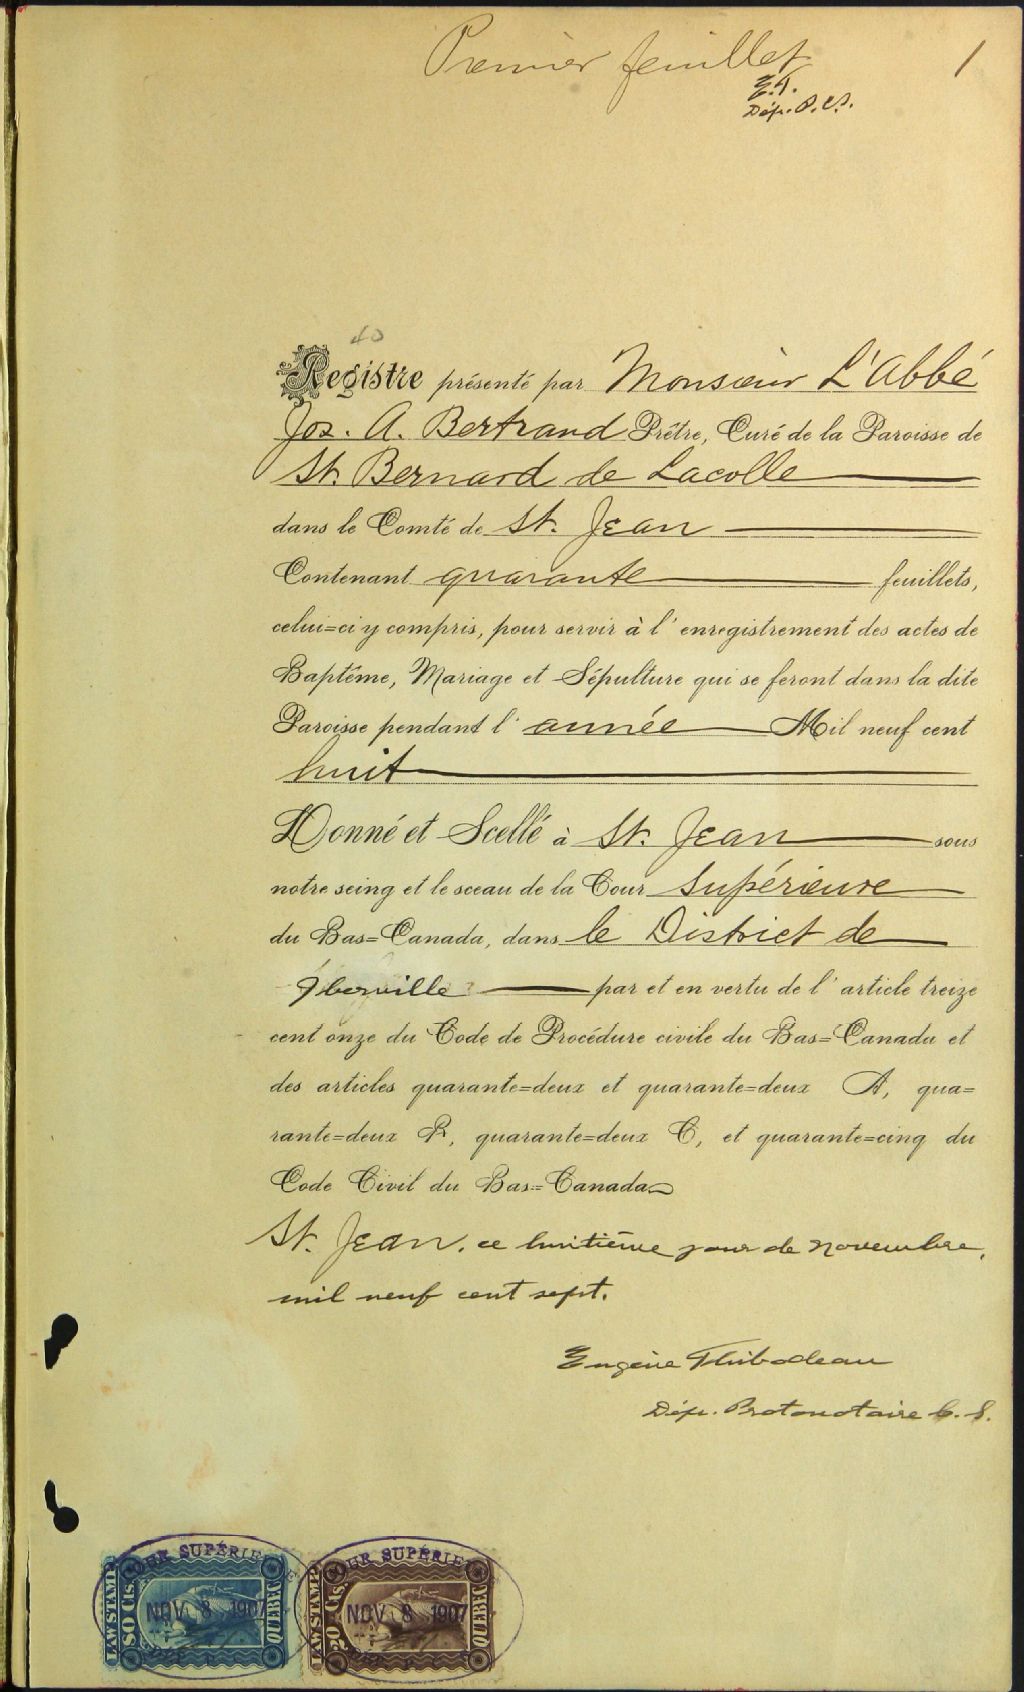 Premier feuillet
1
E.T.
Dép. P.C.S.
40
Registre présenté par Monsieur L'Abbé
Jos. A. Bertrand Prêtre, Curé de la Paroisse de
St. Bernard de Lacolle
dans le Comté de St. Jean
Contenant quarante feuillets,
celui=ci y compris, pour servir à l'enregistrement des actes de
Baptême, Mariage et Sépulture qui se feront dans la dite
Paroisse pendant l'année Mil neuf cent
huit
Donné et Scellé à St. Jean sous
notre seing et le sceau de la Cour Supérieure
du Bas=Canada, dans le District de
Iberville par et en vertu de l'article treize
cent onze du Code de Procédure civile du Bas=Canada et
des articles quarante=deux et quarante=deux A, qua=
rante=deux B, quarante=deux C, et quarante=cinq du
Code Civil du Bas=Canada
St. Jean, ce huitième jour de novembre,
mil neuf cent sept.
Eugène Thibodeau
Dép. Protonotaire C.S.
COUR SUPÉRIE
LAW STAMP
80 Cts.
NOV 8 1907
QUEBEC
COUR SUPÉRIE
LAW STAMP
20 Cts.
NOV 8 1907
QUEBEC